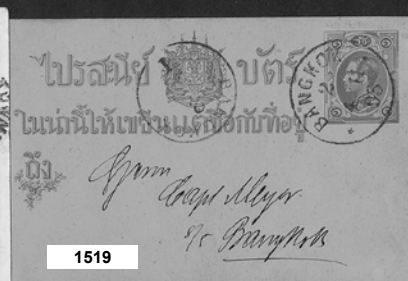 ไปรสนีย์ บัตร์
ในน่านี้ให้เขียนแต่ชื่อกับที่อยู่
BANGKOK
ถึง
Herrn
Capt Meyer
Bangkok
1519